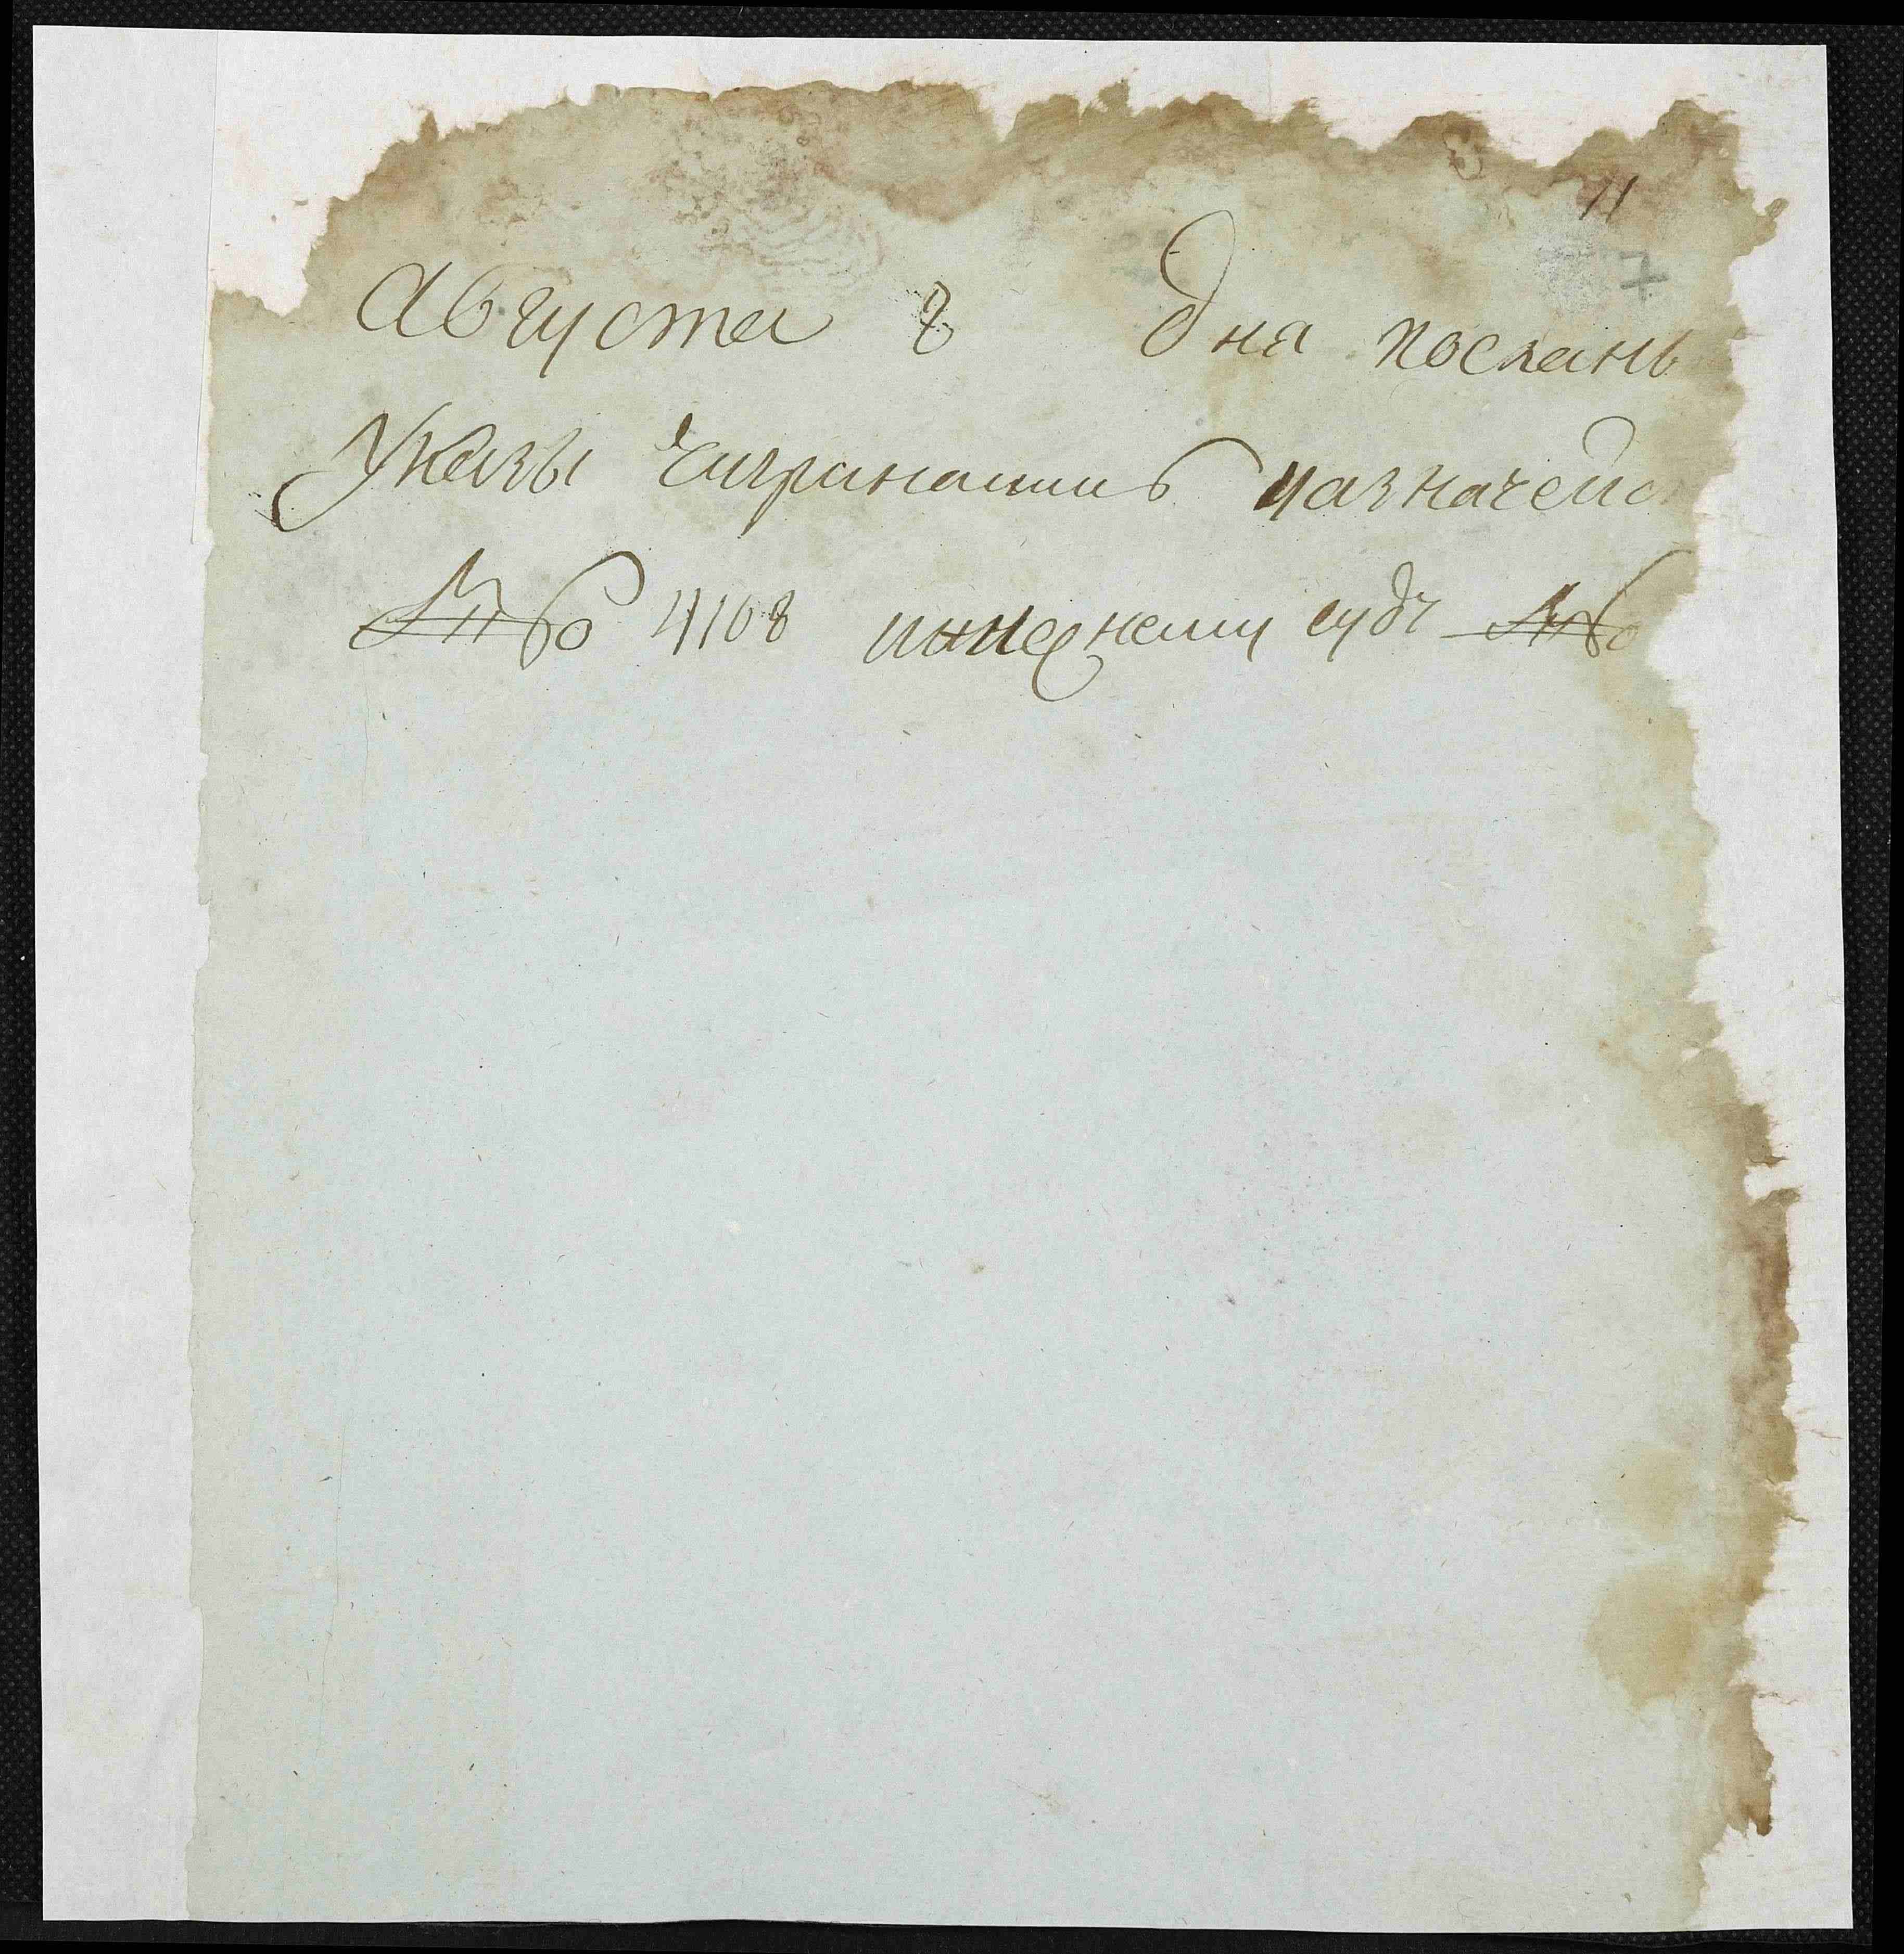 11
7
Августа 8 дня посланы
Указы казначейс
№ 4108 и нижнему суду №